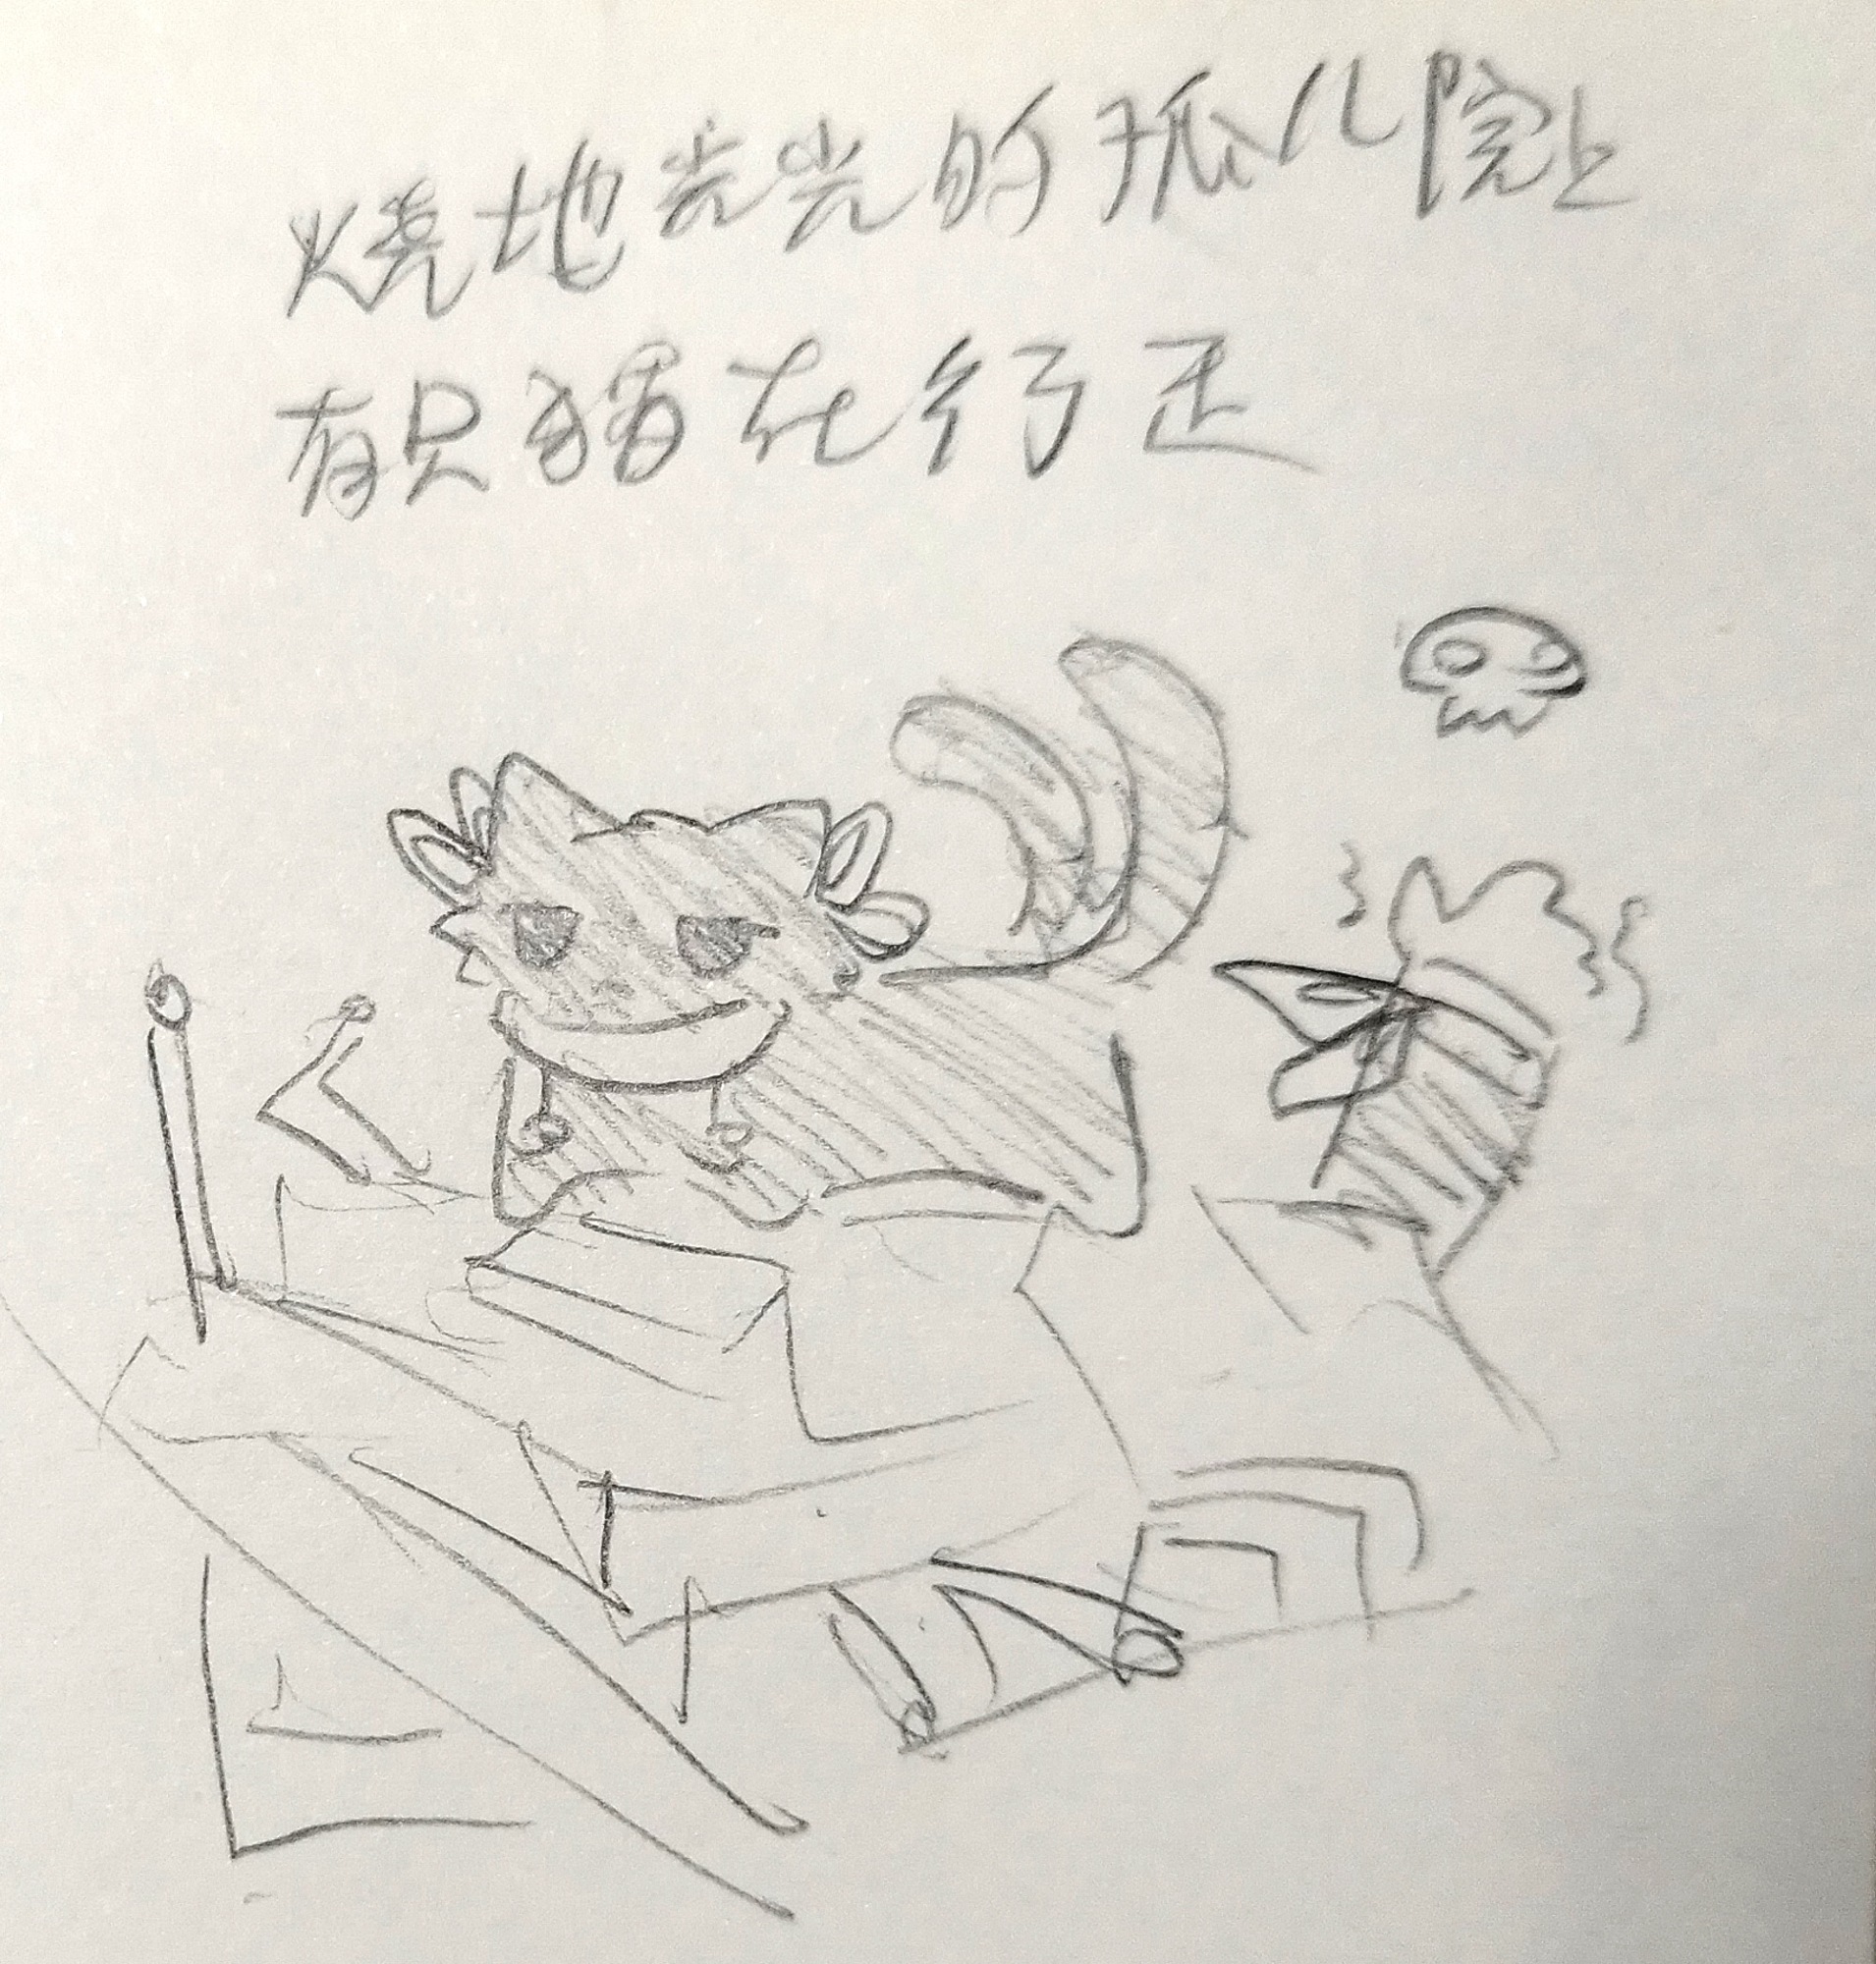 烧地光光的孤儿院上
有只猫在行走